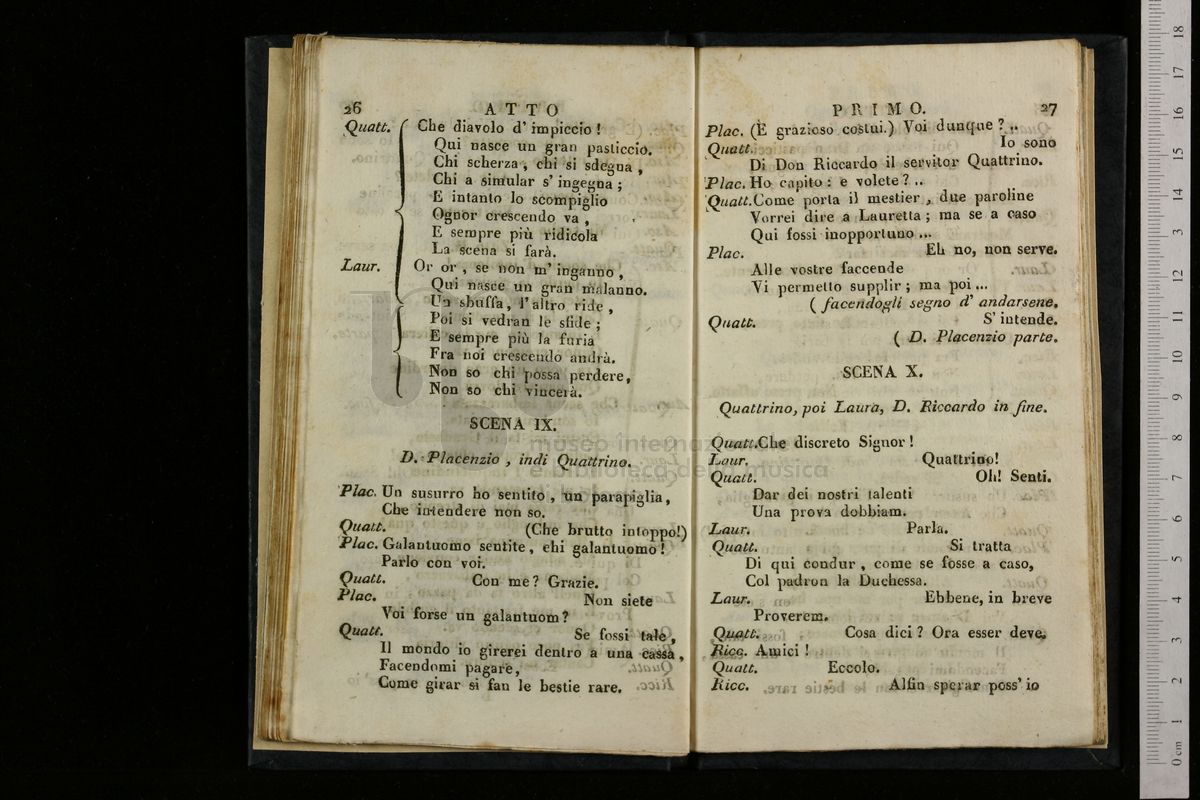 26 ATTO
Quatt. Che diavolo d' impiccio !
Qui nasce un gran pasticcio.
Chi scherza , chi si sdegna ,
Chi a simular s' ingegna ;
E intanto lo scompiglio
Ognor crescendo va ,
E sempre più ridicola
La scena si farà.
Laur. Or or , se non m' inganno ,
Qui nasce un gran malanno.
Un sbuffa, l' altro ride ,
Poi si vedran le sfide ;
E sempre più la furia
Fra noi crescendo andrà.
Non so chi possa perdere,
Non so chi vincerà.
SCENA IX.
D. Placenzio , indi Quattrino.
Plac. Un susurro ho sentito , un parapiglia,
Che intendere non so.
Quatt. (Che brutto intoppo!)
Plac. Galantuomo sentite, ehi galantuomo !
Parlo con voi.
Quatt. Con me? Grazie.
Plac. Non siete
Voi forse un galantuom?
Quatt. Se fossi tale,
Il mondo io girerei dentro a una cassa,
Facendomi pagare,
Come girar si fan le bestie rare.
PRIMO. 27
Plac. (È grazioso costui.) Voi dunque ? ..
Quatt. Io sono
Di Don Riccardo il servitor Quattrino.
Plac. Ho capito : e volete ? ..
Quatt. Come porta il mestier , due paroline
Vorrei dire a Lauretta ; ma se a caso
Qui fossi inopportuno ...
Plac. Eh no, non serve.
Alle vostre faccende
Vi permetto supplir ; ma poi ...
( facendogli segno d' andarsene.
Quatt. S' intende.
( D. Placenzio parte.
SCENA X.
Quattrino, poi Laura, D. Riccardo in fine.
Quatt. Che discreto Signor !
Laur. Quattrino!
Quatt. Oh! Senti.
Dar dei nostri talenti
Una prova dobbiam.
Laur. Parla.
Quatt. Si tratta
Di qui condur , come se fosse a caso,
Col padron la Duchessa.
Laur. Ebbene, in breve
Proverem.
Quatt. Cosa dici ? Ora esser deve.
Ricc. Amici !
Quatt. Eccolo.
Ricc. Alfin sperar poss' io
museo internazionale
e biblioteca della musica
0 cm 1 2 3 4 5 6 7 8 9 10 11 12 13 14 15 16 17 18